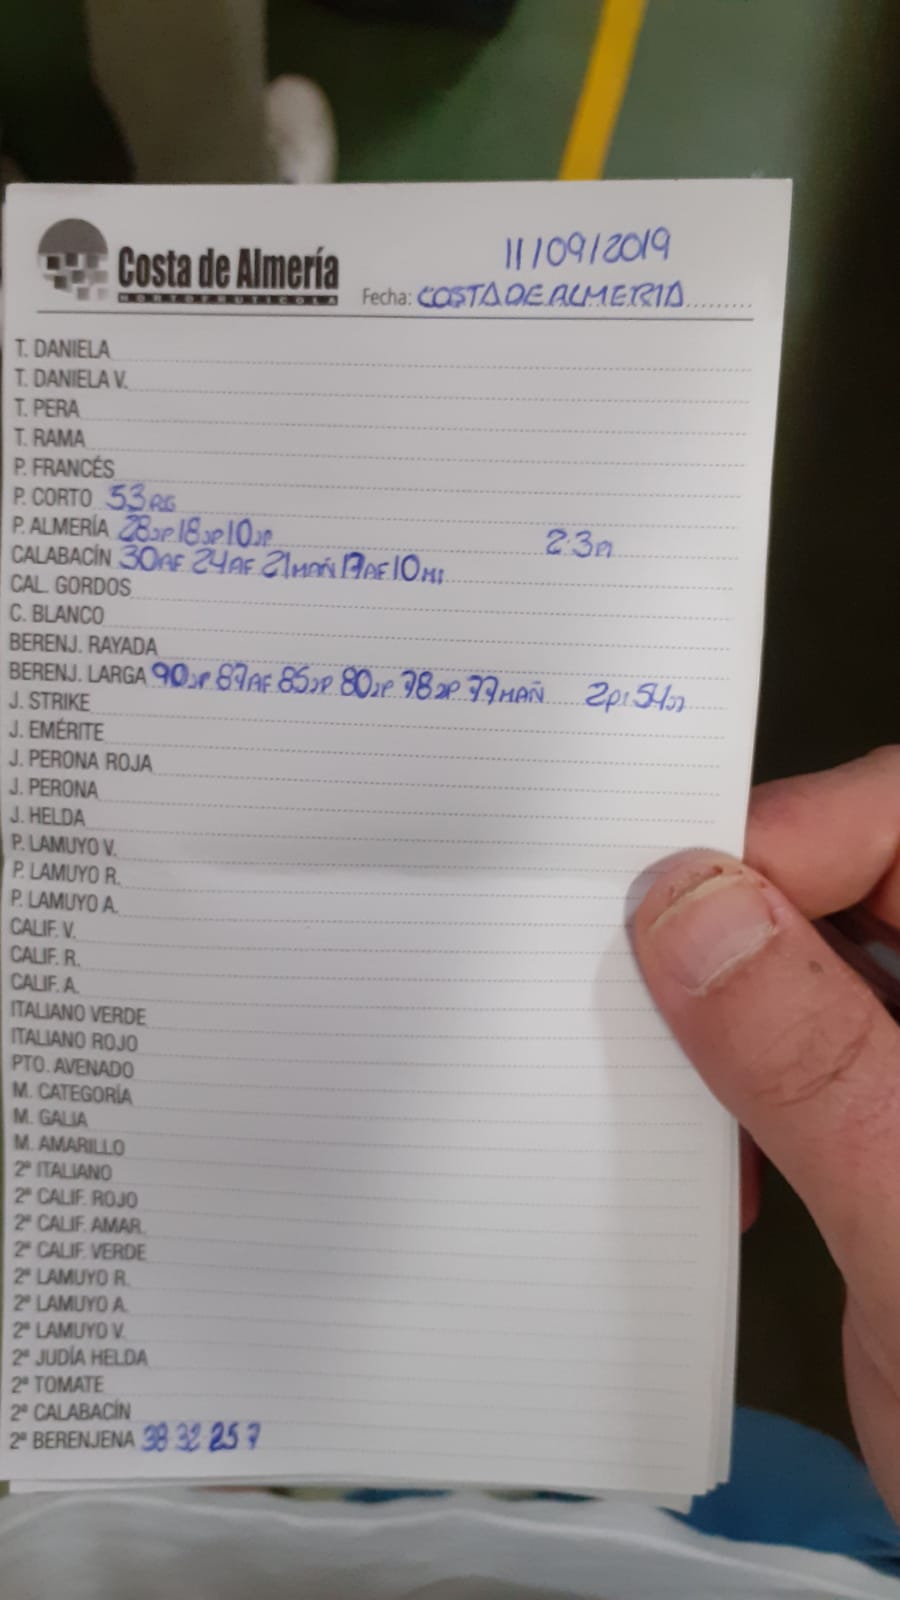 11/09/2019
Costa de Almería
HORTOFRUTICOLA
Fecha: COSTA DE ALMERIA
T. DANIELA
T. DANIELA V.
T. PERA
T. RAMA
P. FRANCÉS
P. CORTO 53RG
P. ALMERÍA 28JP 18JP 10JP 2·3PI
CALABACÍN 30AF 24AF 21MAÑ 17AF 10MI
CAL. GORDOS
C. BLANCO
BERENJ. RAYADA
BERENJ. LARGA 90JP 87AF 85JP 80JP 78JP 77MAÑ 2PI 54JJ
J. STRIKE
J. EMÉRITE
J. PERONA ROJA
J. PERONA
J. HELDA
P. LAMUYO V.
P. LAMUYO R.
P. LAMUYO A.
CALIF. V.
CALIF. R.
CALIF. A.
ITALIANO VERDE
ITALIANO ROJO
PTO. AVENADO
M. CATEGORÍA
M. GALIA
M. AMARILLO
2ª ITALIANO
2ª CALIF. ROJO
2ª CALIF. AMAR.
2ª CALIF. VERDE
2ª LAMUYO R.
2ª LAMUYO A.
2ª LAMUYO V.
2ª JUDÍA HELDA
2ª TOMATE
2ª CALABACÍN
2ª BERENJENA 38 32 25 7